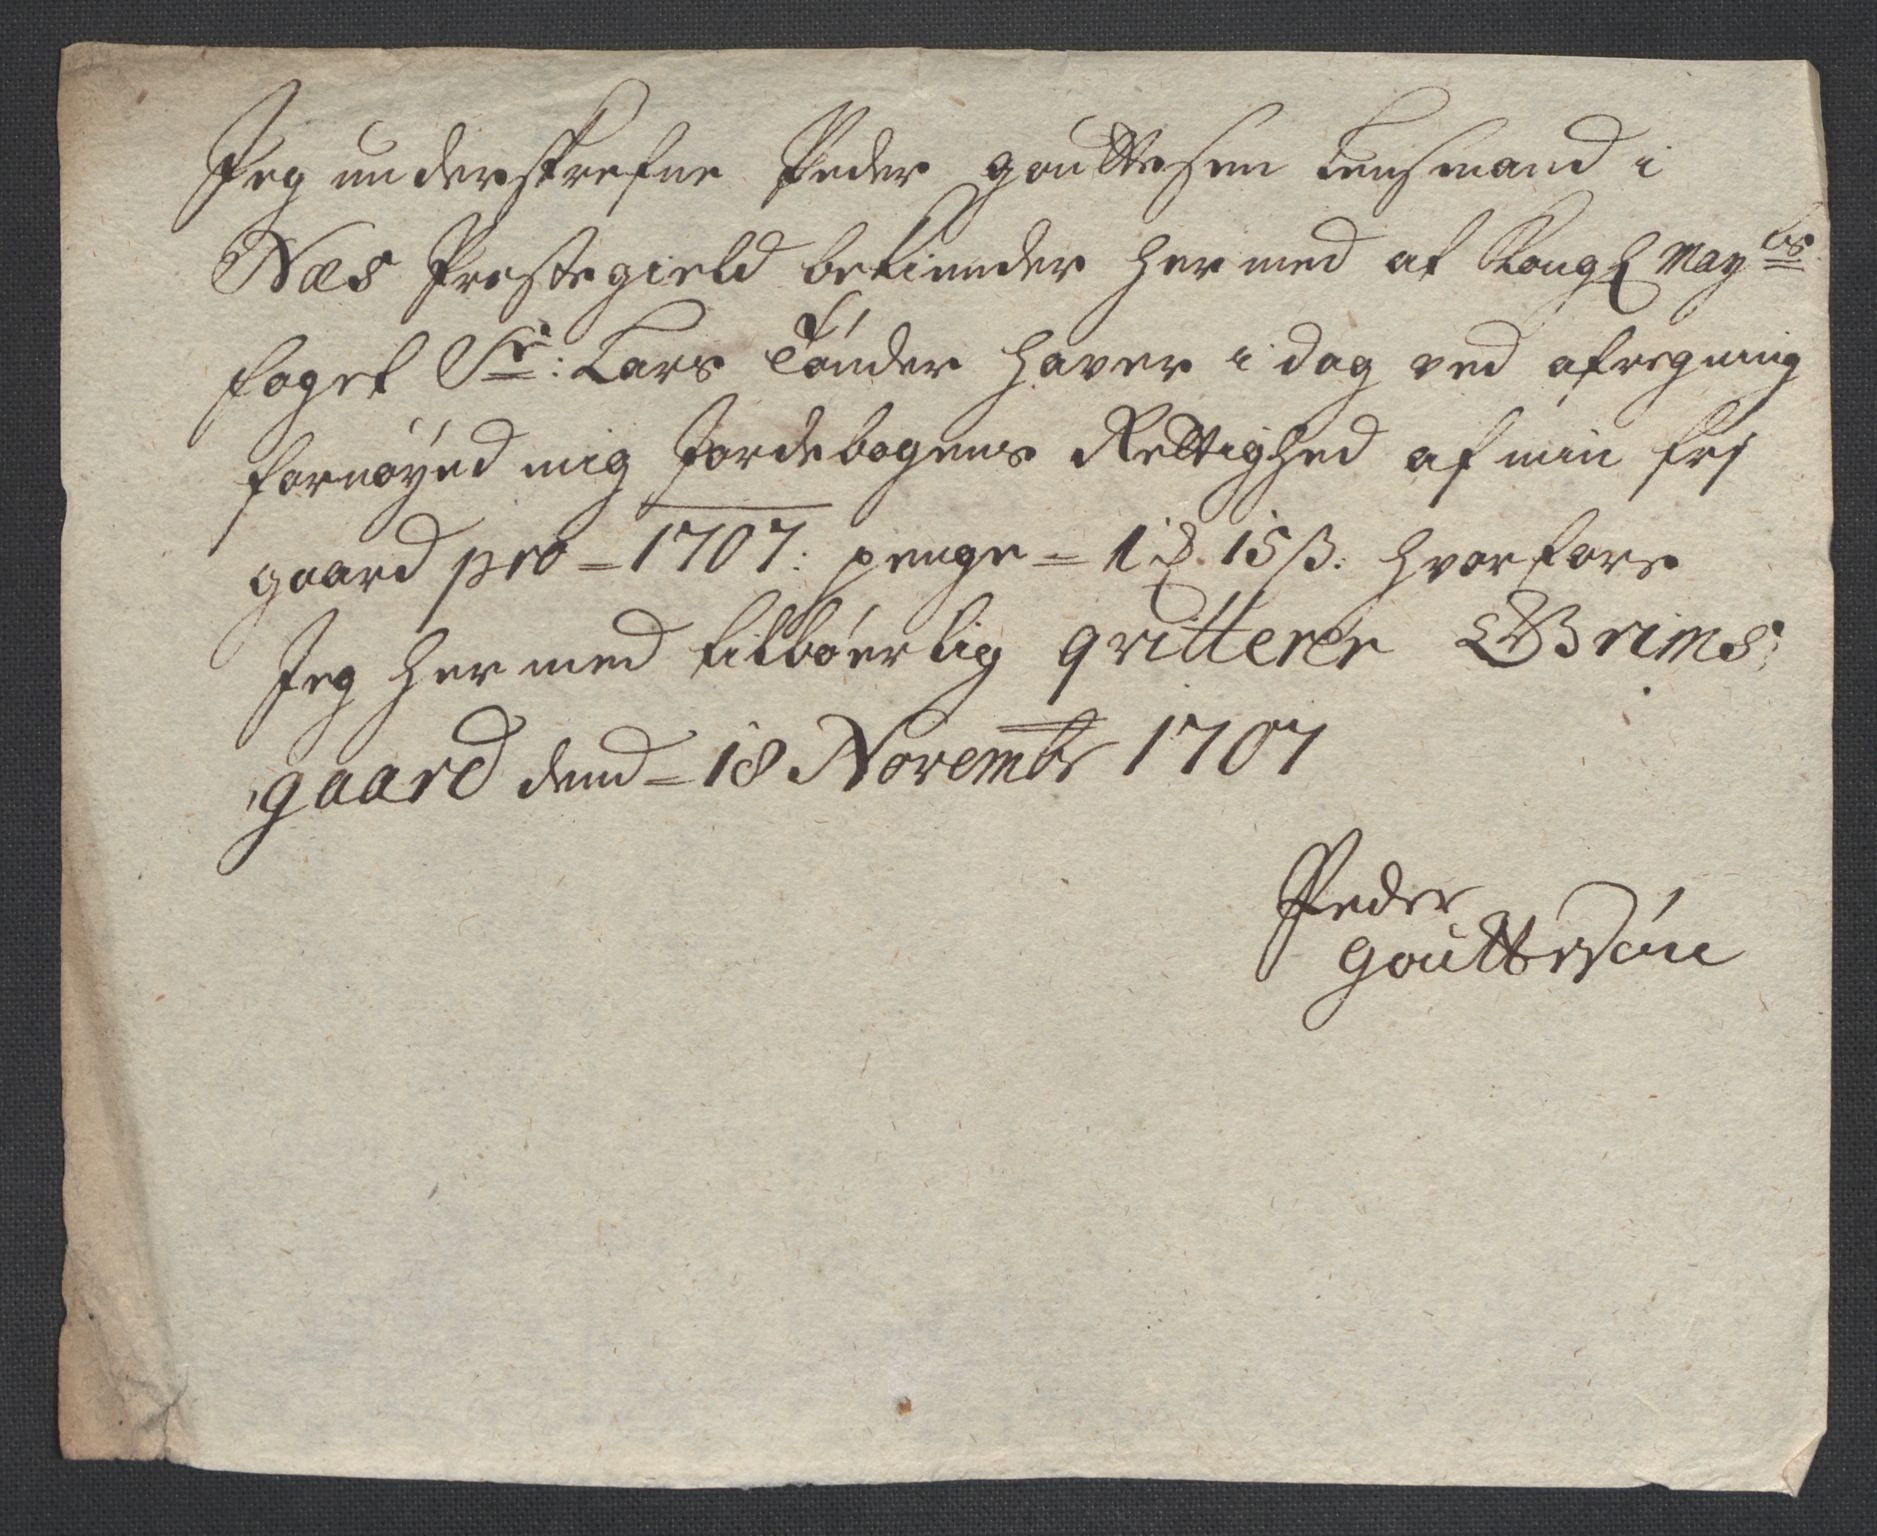 Jeg underskrefne Peder gouttesen Lensmand i
Næs Prestegield bekiender hermed at Kongl Mayts
foget Sr: Lars Tønder haver i dag ved afregning
fornøyed mig Jordebogens Rettighed af min frj
gaard pro = 1707: penge = 1 d 15 ß: hvorfore
Jeg hermed tilbøerlig qvitterer Grims,
gaard dend = 18 Novembr 1707
Peder
gouttesøn